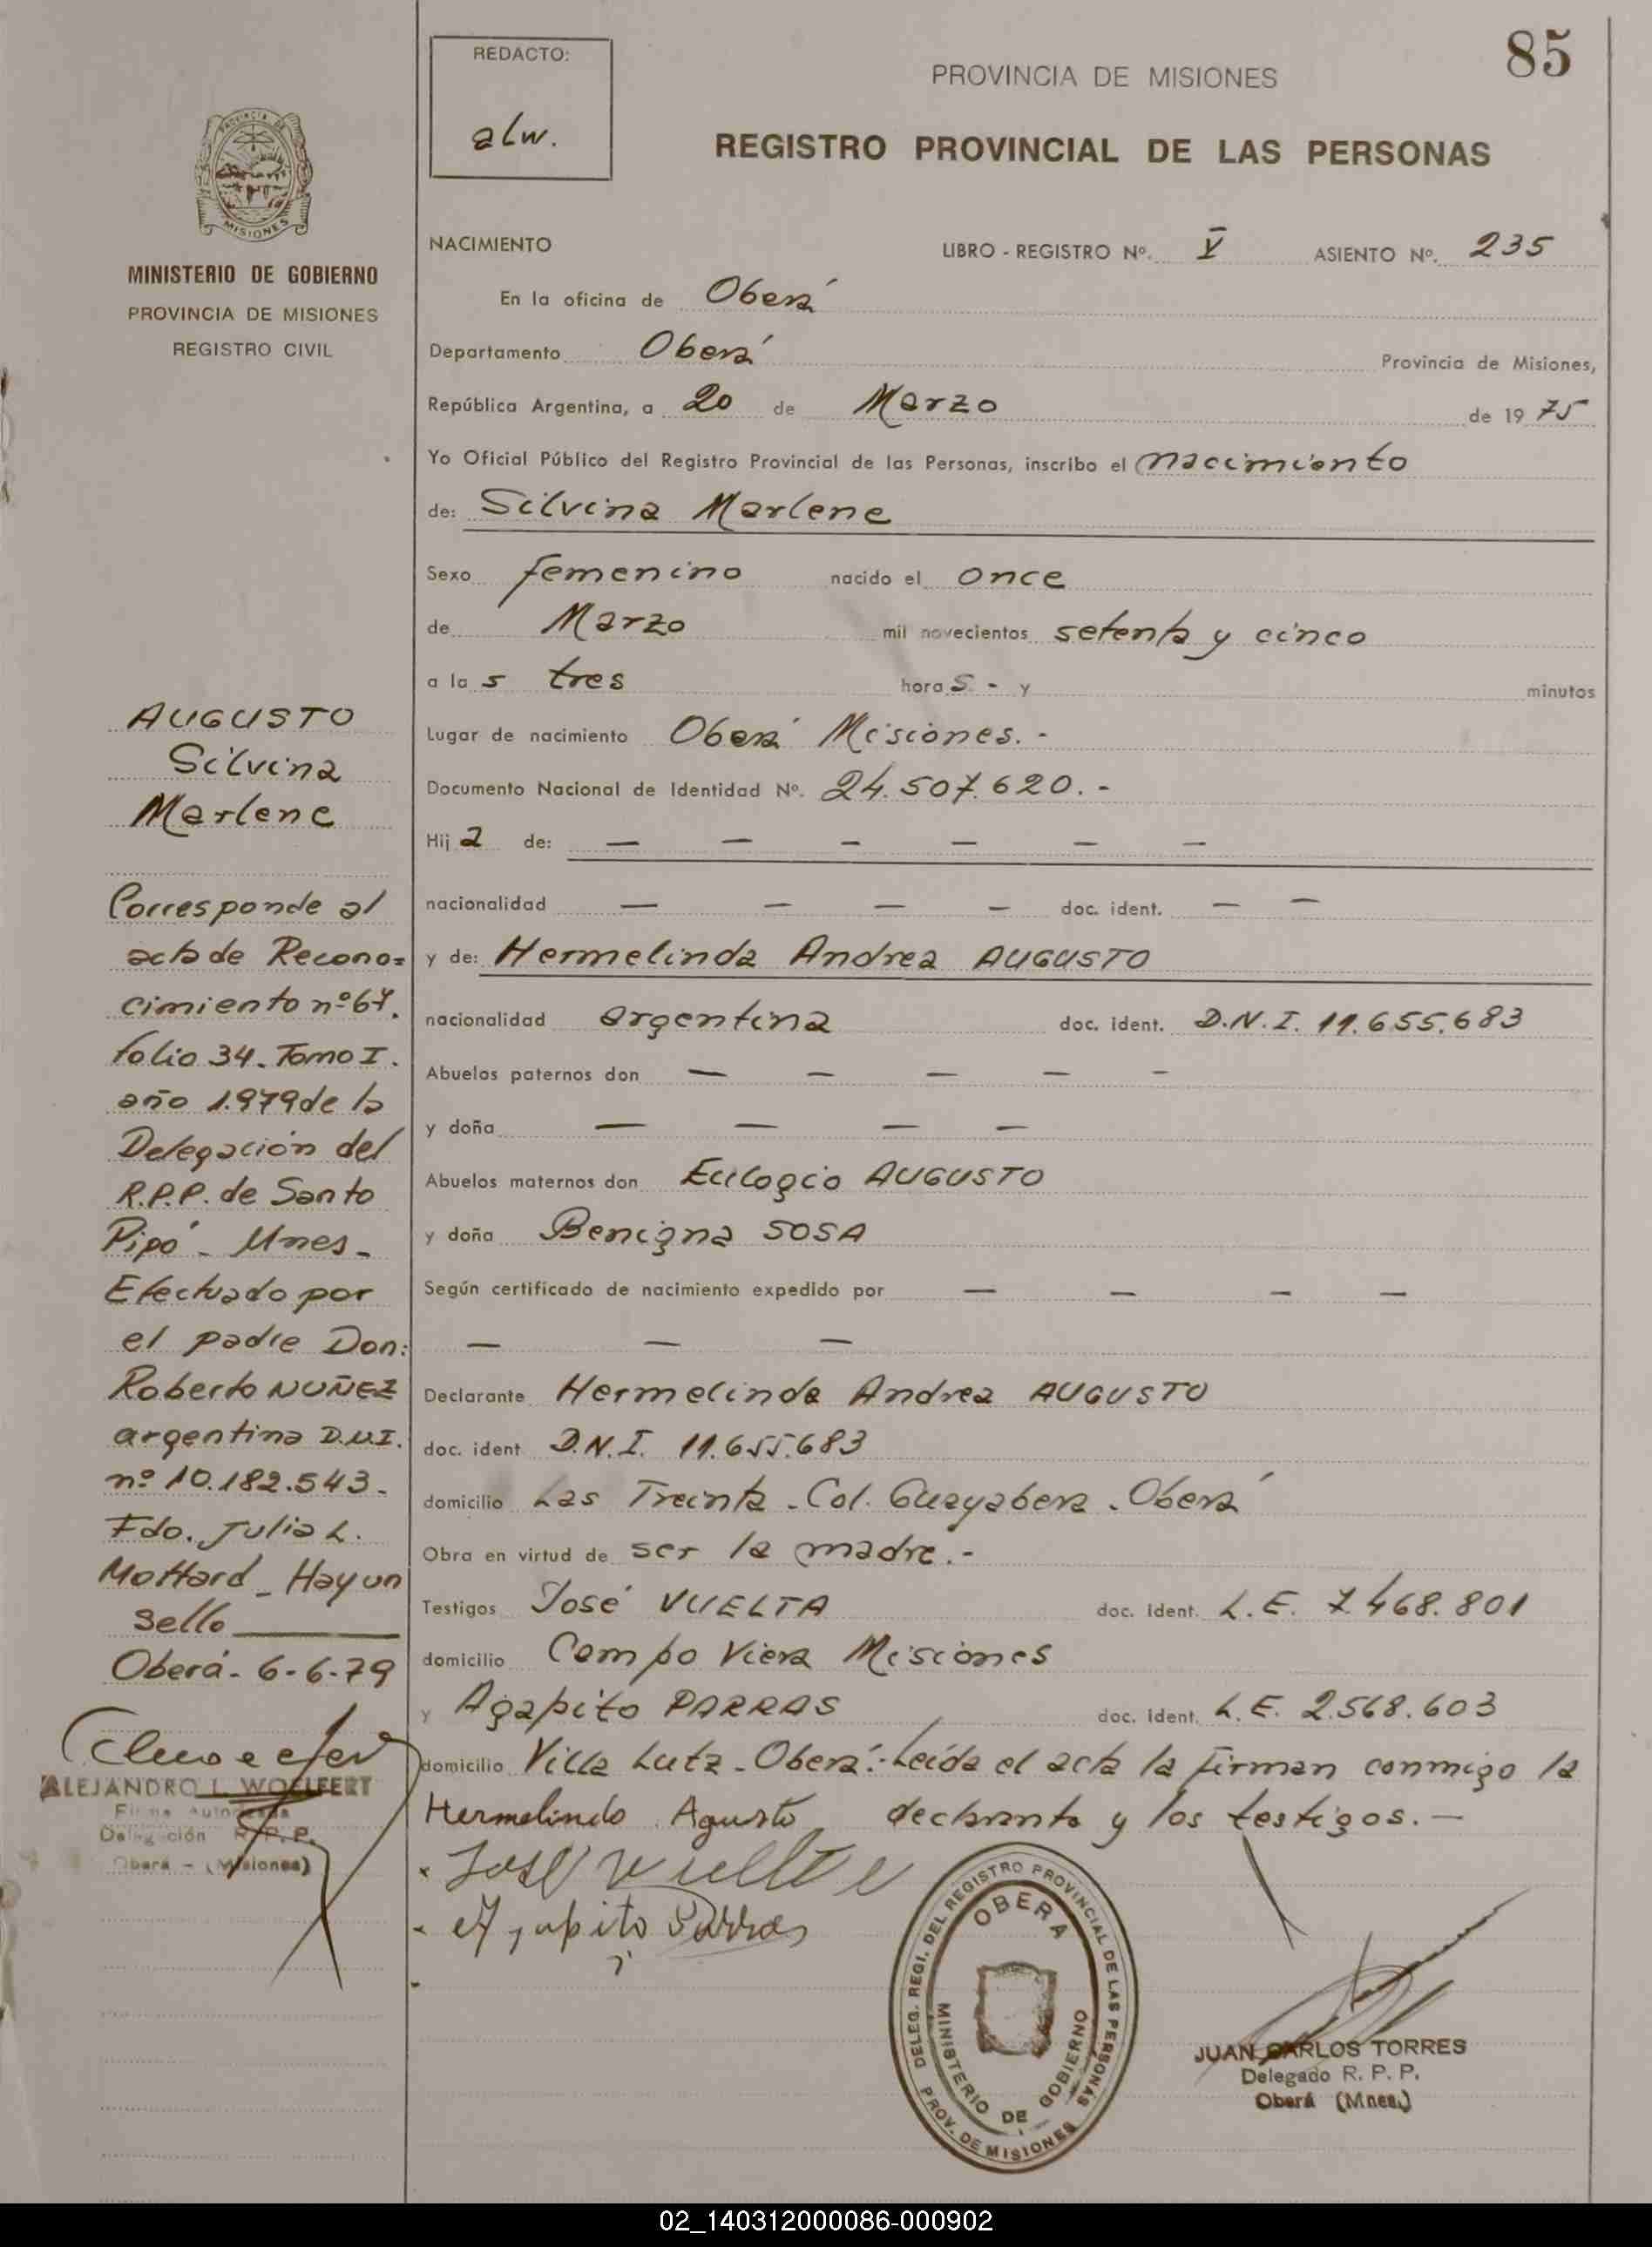 85
REDACTO:
alw.
PROVINCIA DE MISIONES
REGISTRO PROVINCIAL DE LAS PERSONAS
PROVINCIA DE
MISIONES
MINISTERIO DE GOBIERNO
PROVINCIA DE MISIONES
REGISTRO CIVIL
NACIMIENTO LIBRO - REGISTRO Nº. V ASIENTO Nº. 235
En la oficina de Oberá
Departamento Oberá Provincia de Misiones,
República Argentina, a 20 de Marzo de 19 75
Yo Oficial Público del Registro Provincial de las Personas, inscribo el nacimiento
de: Silvina Marlene
Sexo femenino nacido el once
de Marzo mil novecientos setenta y cinco
a la s tres hora s. - y minutos
Lugar de nacimiento Oberá Misiones. -
Documento Nacional de Identidad Nº. 24.507.620. -
Hij a de: — — — — — —
nacionalidad — — — — doc. ident. — —
y de: Hermelinda Andrea AUGUSTO
nacionalidad argentina doc. ident. D.N.I. 11.655.683
Abuelos paternos don — — — — —
y doña — — — —
Abuelos maternos don Eulogio AUGUSTO
y doña Benigna SOSA
Según certificado de nacimiento expedido por — — — —
— — —
Declarante Hermelinda Andrea AUGUSTO
doc. ident D.N.I. 11.655.683
domicilio Las Treinta - Col. Guayabera - Oberá
Obra en virtud de ser la madre. -
Testigos José VUELTA doc. ident. L.E. 7.468.801
domicilio Campo Viera Misiones
y Agapito PARRAS doc. ident. L.E. 2.568.603
domicilio Villa Lutz - Oberá.- Leída el acta la firman conmigo la
Hermelinda Agusto declarante y los testigos. —
José Vuelta
Agapito Parras
AUGUSTO
Silvina
Marlene
Corresponde al
acta de Recono=
cimiento nº 67.
folio 34. Tomo I.
año 1.979 de la
Delegación del
R.P.P. de Santo
Pipó - Mnes -
Efectuado por
el padre Don:
Roberto NUÑEZ
argentino D.N.I.
nº 10.182.543 -
Fdo. Julio L.
Mottard - Hay un
sello
Oberá - 6-6-79
ALEJANDRO L. WOELFERT
Firma Autorizada
Delegación R.P.P.
Oberá - (Misiones)
DELEG. REGI. DEL REGISTRO PROVINCIAL DE LAS PERSONAS
PROV. DE MISIONES
OBERA
MINISTERIO DE GOBIERNO
JUAN CARLOS TORRES
Delegado R. P. P.
Oberá (Mnes.)
02_140312000086-000902